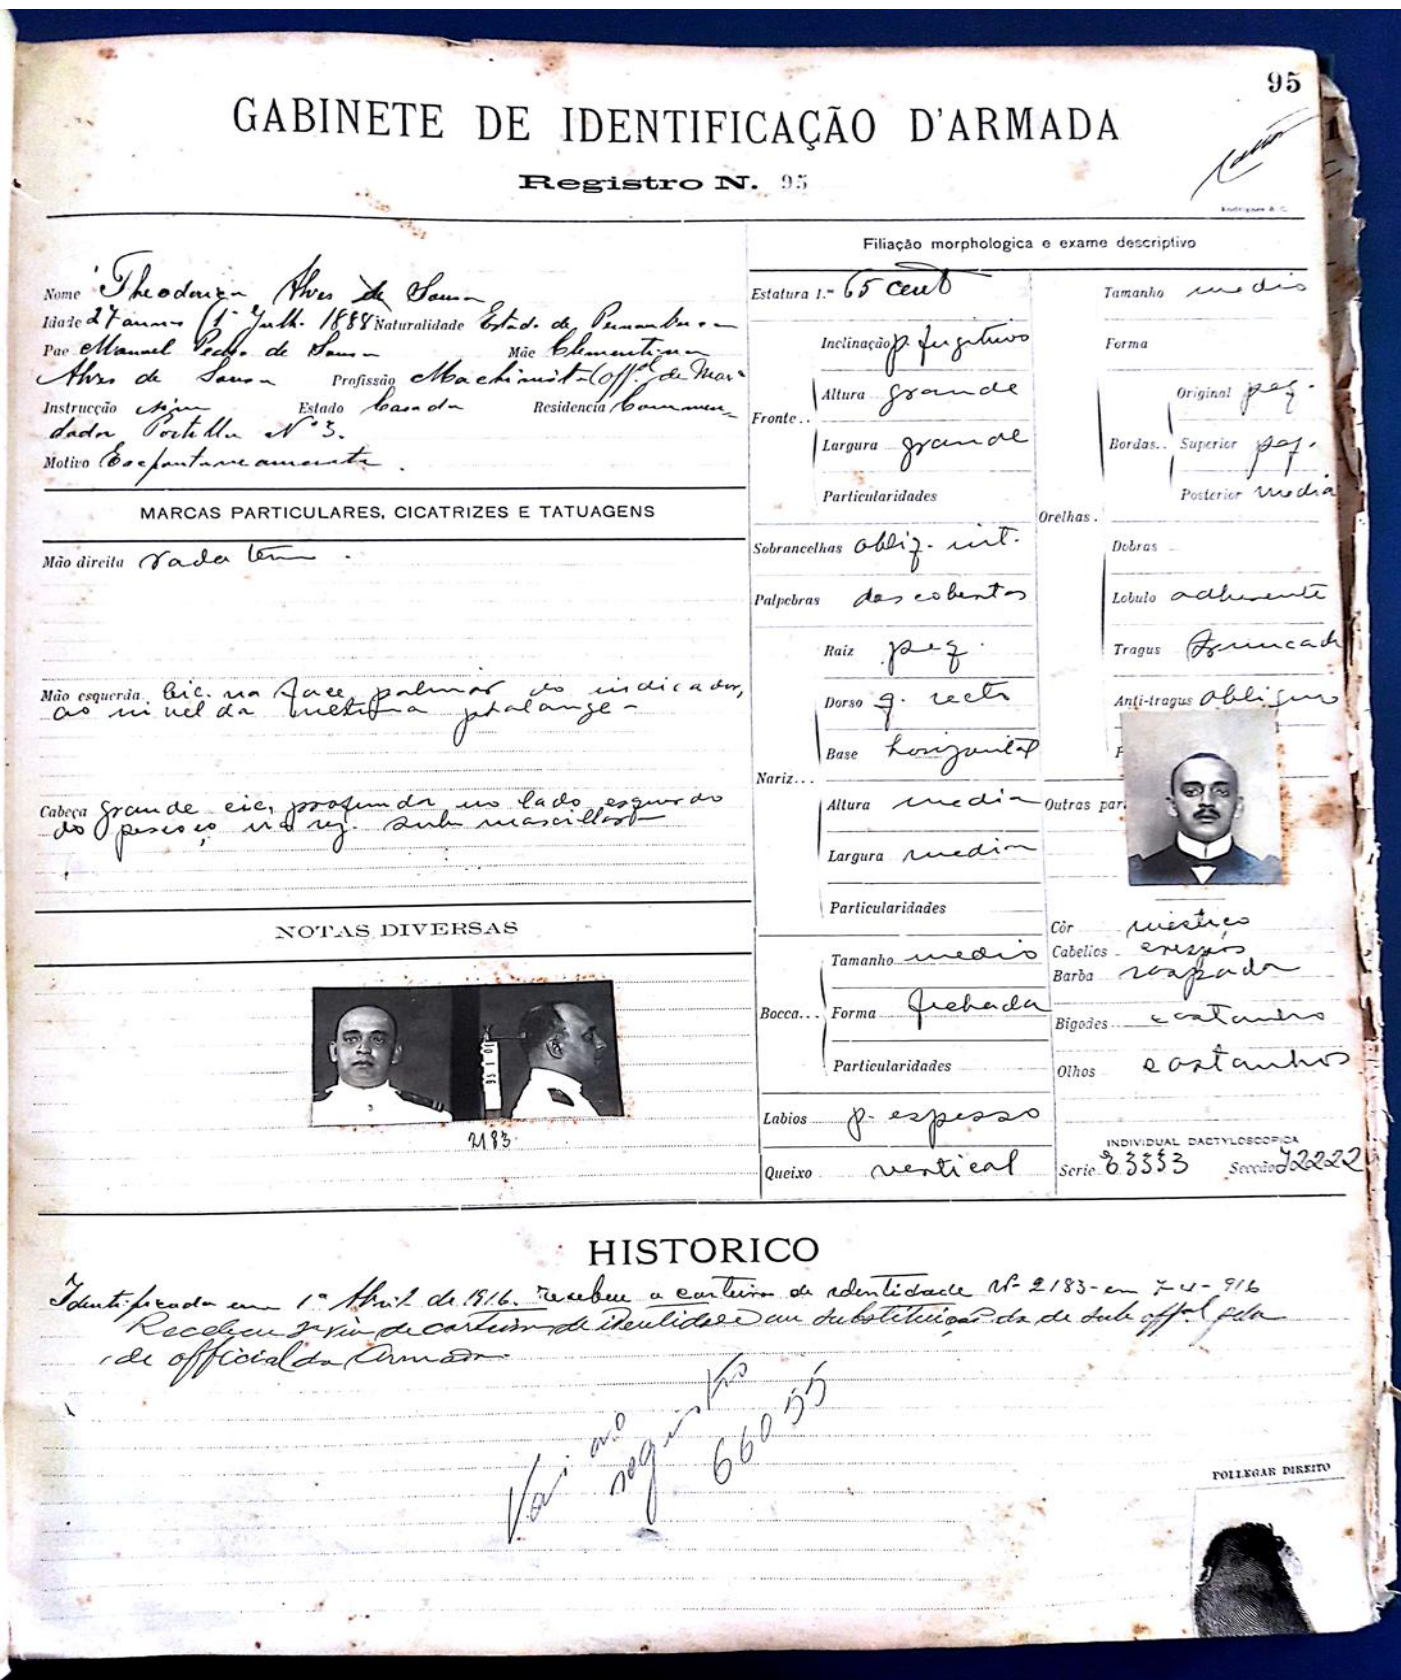 95
GABINETE DE IDENTIFICAÇÃO D'ARMADA
Registro N. 95
Filiação morphologica e exame descriptivo
Nome Alves de Sousa
Idade 27 annos (1º Julh. 1888 Naturalidade Estado de Pernambuco
Pae Manoel Pedro de Sousa Mãe Clementina
Alves de Sousa Profissão Machinista (off.al de Mar.ª
Instrucção sim Estado Casado Residencia Commen-
dador Portella Nº 3.
Motivo Espontaneamente.
MARCAS PARTICULARES, CICATRIZES E TATUAGENS
Mão direita nada tem.
Mão esquerda cic. na face palmar do indicador,
ao nivel da phalange
Cabeça grande cic. profunda no lado esquerdo
do pescoço na reg. sub maxillar
NOTAS DIVERSAS
2183.
Estatura 1.m 65 cent
Fronte..
Inclinação p. fugitivo
Altura grande
Largura grande
Particularidades
Sobrancelhas obliq. int.
Palpebras descobertas
Nariz...
Raiz peq.
Dorso q. recto
Base horizontal
Altura media
Largura media
Particularidades
Bocca...
Tamanho medio
Forma fechada
Particularidades
Labios p. espesso
Queixo vertical
Orelhas.
Tamanho medio
Forma
Bordas..
Original peq.
Superior peq.
Posterior media
Dobras
Lobulo adherente
Tragus truncado
Anti-tragus obliquo
Outras par
Côr mestiço
Cabellos crespos
Barba raspada
Bigodes castanho
Olhos castanhos
INDIVIDUAL DACTYLOSCOPICA
Serie Secção
HISTORICO
Identificado em 1º Abril de 1916. recebeu a carteira de identidade Nº 2183 - em 7-4-916
Recebeu 2ª via de carteira de identidade em substituição da de sub off.al pela
de official da Armada.
Vai ao
registro
66055
POLLEGAR DIREITO